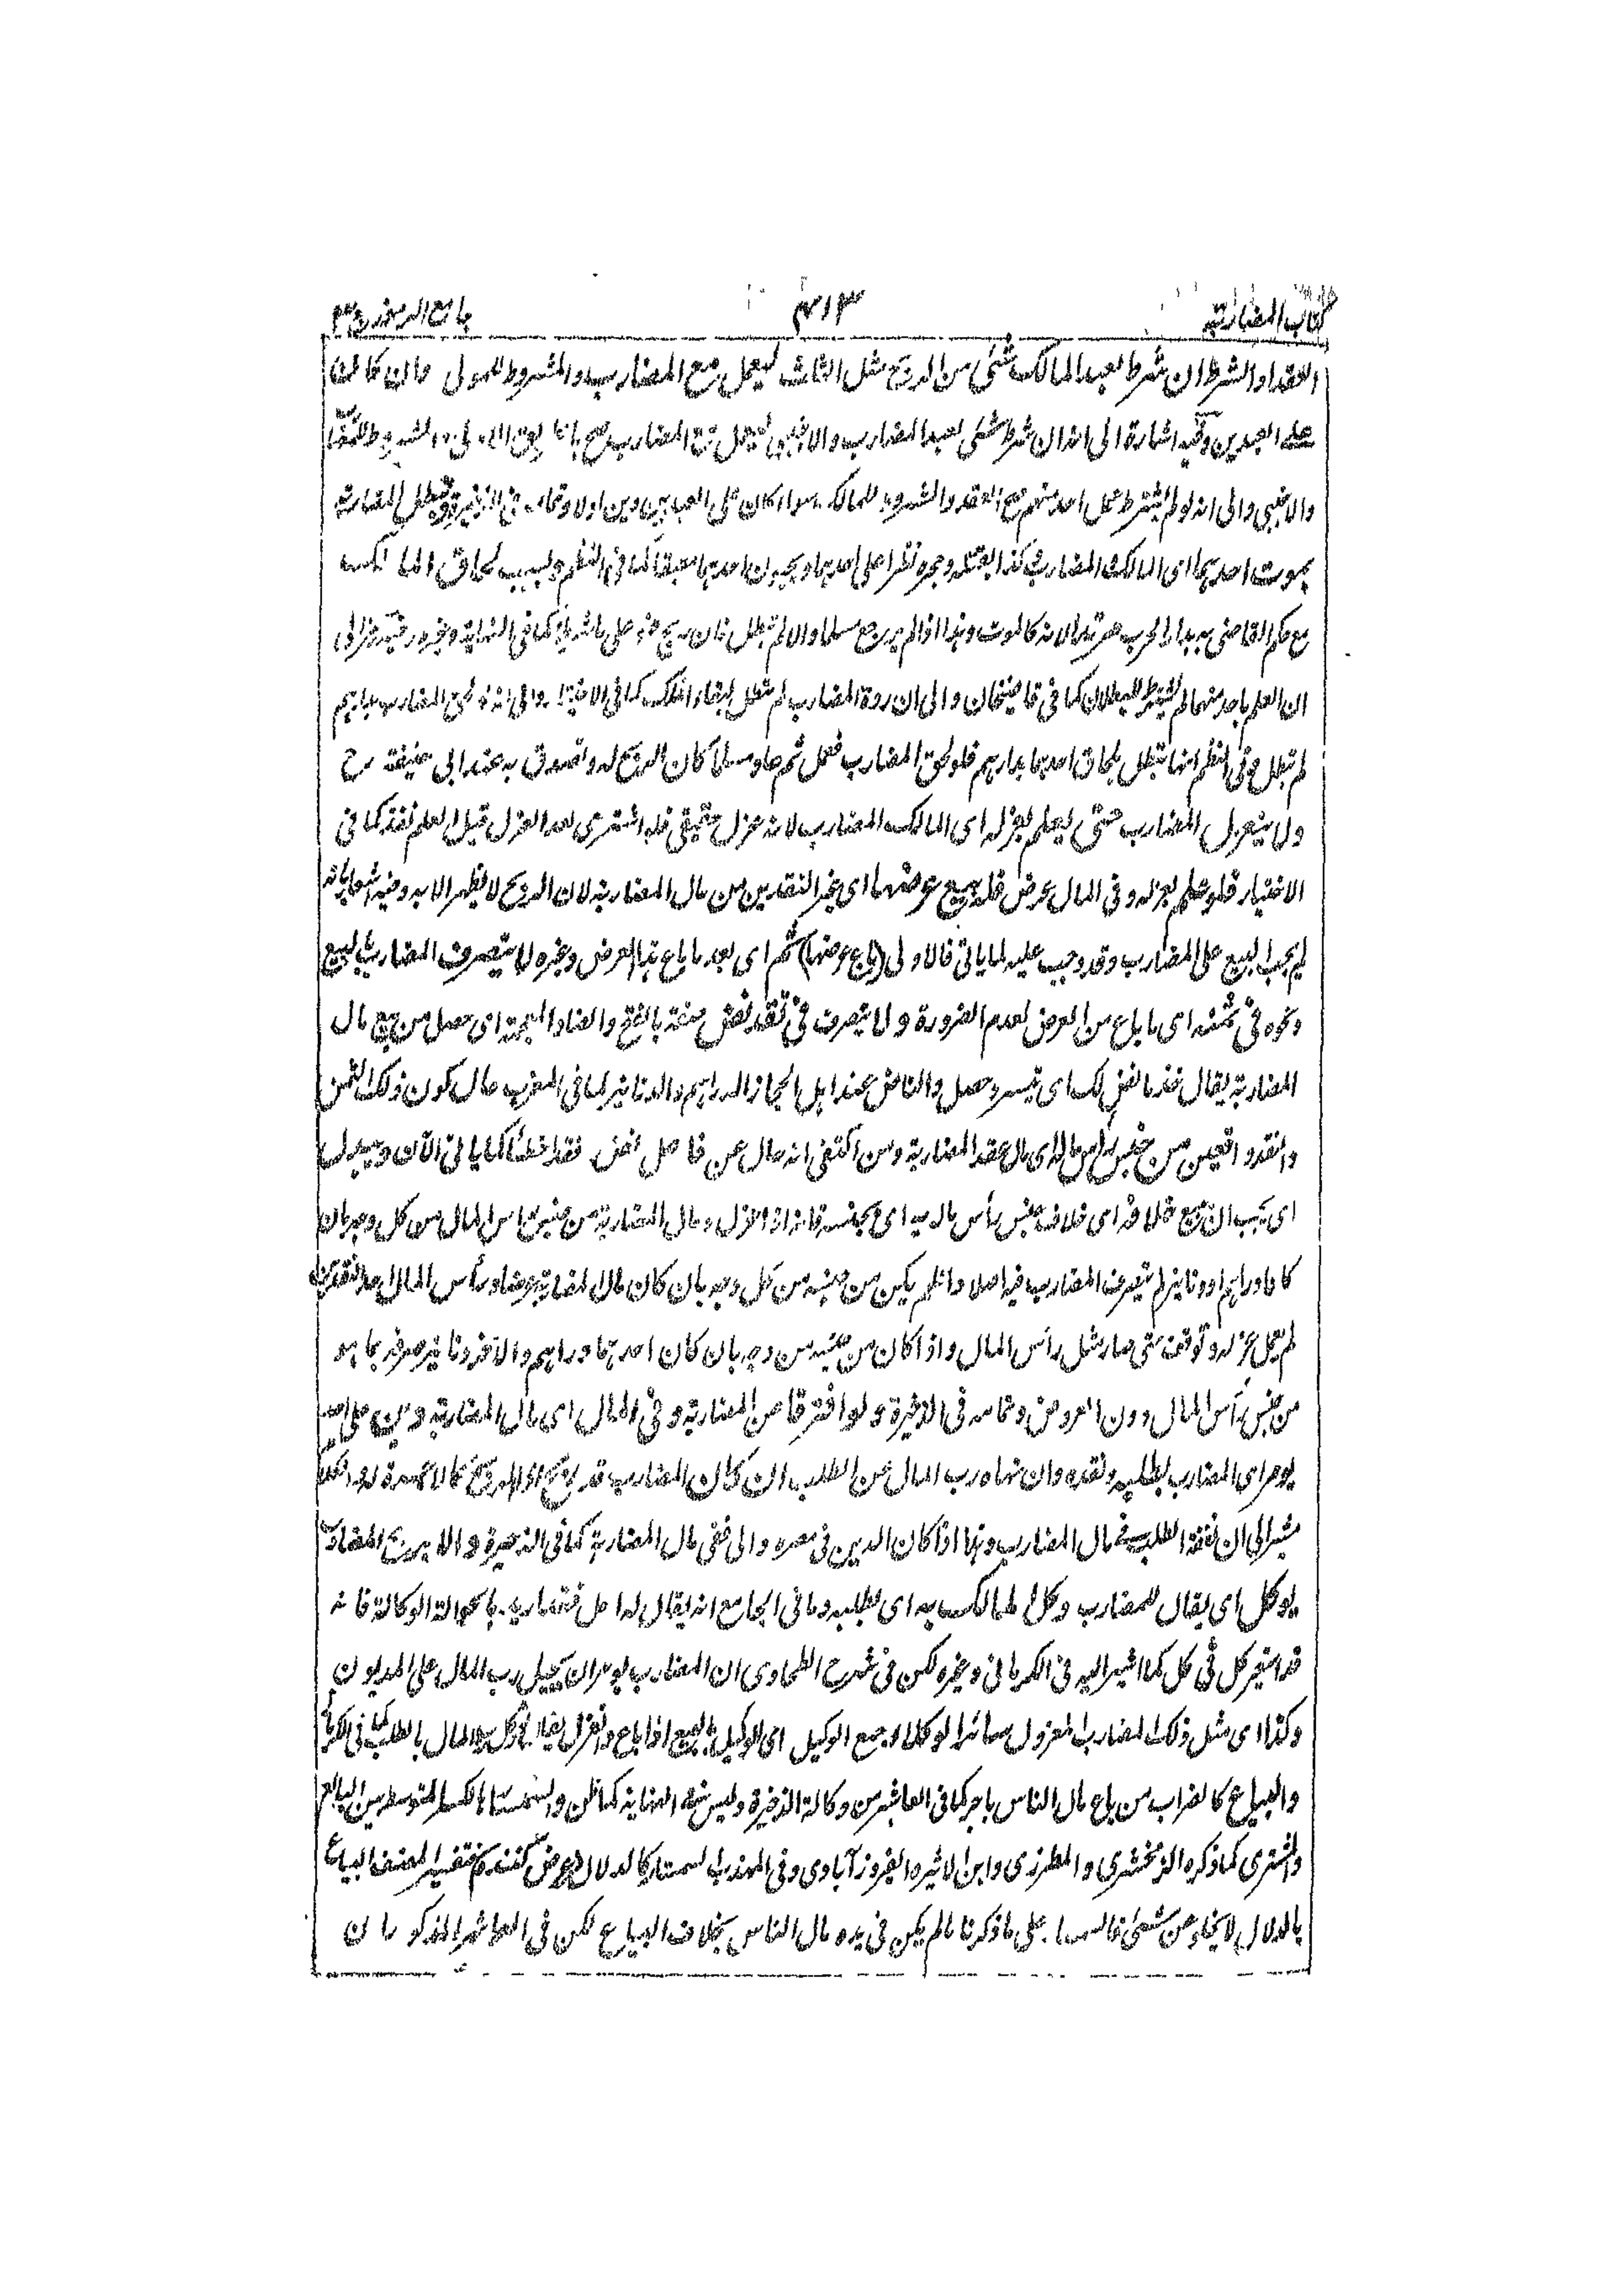 كتاب المضاربة ٤١٣ جامع الرموز ج ٣
العقد او الشرط ان شرط لعبد المالك شئ من الربح مثل الثلث ليعمل مع المضارب والمشروط للمولى وان كان
على العبد دين وفيه اشارة الى انه ان شرط شئ لعبد المضارب والاجنبى ليعمل مع المضارب صح والمشروط
والاجنبى والى انه لو لم يشترط عمل احد منهم صح العقد والمشروط للمالك سواء كان على العبد دين اولا وتمامه فى الذخيرة وتبطل المضاربة
بموت احدهما اى المالك والمضارب نظرا على احدهما كما فى النظم وبسبب لحاق المالك
مع حكم القاضى به بدار الحرب مرتدا لانه كالموت وهذا اذا لم يرجع مسلما والا لم تبطل على ما شرط كما فى النهاية وغيره
ان العلم باحد منهما لم يشترط للبطلان كما فى قاضيخان والى ان ردة المضارب لم تبطل لبقاء الملك كما فى الاختيار والى انه لو لحق المضارب بدارهم
لم تبطل وفى النظم انها تبطل بلحاق احدهما بدارهم فلو لحق المضارب فعمل ثم عاد مسلما كان الربح له وتصدق به عند ابى حنيفة رح
ولا ينعزل المضارب حتى يعلم بعزله اى المالك المضارب لانه عزل حقيقى فلو اشترى بعد العزل قبل العلم نفذ كما فى
الاختيار فلو علم بعزله وفى المال عرض فله بيع عرضها اى غير النقدين من مال المضاربة لان الربح لا يظهر الا به وفيه اشعار بانه
لم يجب البيع على المضارب وقد وجب عليه لما ياتى فالاولى (باع عرضها) ثم اى بعد ما باع هذا العرض وغيره لا يتصرف المضارب بالبيع
ونحوه فى ثمنه اى ما باع من العرض لعدم الضرورة ولا يتصرف فى نقد نض صفته بالفتح والضاد المعجمة اى حصل من بيع مال
المضاربة يقال خذ ما نض لك اى تيسر وحصل والناض عند اهل الحجاز الدراهم والدنانير كما فى المغرب حال كون ذلك الثمن
والنقد واقعين من جنس راس ماله اى مال عقد المضاربة ومن اكتفى انه حال عن فاعل نض فقد اخطأ كما ياتى الآن ويبدل
اى يجب ان يبيع خلافه اى خلاف جنس رأس ماله به اى بجنسه فانه اذا انعزل ومال المضاربة من جنس راس المال من كل وجه بان
كانا دراهم او دنانير لم يتصرف المضارب فيه اصلا وان لم يكن من جنسه من كل وجه بان كان مال المضاربة عرضا ورأس المال احد النقدين
لم يعمل عزله وتوقف حتى صار مثل رأس المال واذا كان من جنسه من وجه بان كان احدهما دراهم والآخر دنانير صرفه بما هو
من جنس رأس المال دون العروض وتمامه فى الذخيرة ولو افترقا من المضاربة وفى المال اى مال المضاربة دين على احد
يؤمر اى المضارب بطلبه ونقده وان نهاه رب المال عن الطلب ان كان المضارب قد ربح
مشير الى ان نفقة الطلب فى مال المضارب وهذا اذا كان الدين فى مصره والا ففى مال المضاربة كما فى الذخيرة والا يربح المضارب
يوكل اى يقال للمضارب وكل المالك به اى بطلبه وما فى الجامع انه يقال له احل بالحوالة الوكالة فانه
قد استعير كل فى كل كما اشير اليه فى الكرمانى وغيره لكن فى شرح الطحاوى ان المضارب يؤمر ان يحيل رب المال على المديون
وكذا اى مثل ذلك المضارب المعزول سائر الوكلاء جمع الوكيل اى الوكيل بالبيع اذا باع وانعزل يوكل رب المال بالطلب كما فى الكرمانى
والبياع كالضراب من باع مال الناس باجر كما فى العاشر من وكالة الذخيرة وليس فى النهاية كما ظن والسمسار بالكسر المتوسط بين البائع
والمشترى كما ذكره الزمخشرى والمطرزى وابن الاثير والفيروزآبادى وفى المهذب السمسار كالدلال فتفسير المصنف البياع
بالدلال لا يخلو عن شئ فالسمسار على ما ذكرنا ما لم يكن فى يده مال الناس بخلاف البياع لكن فى العاشر المذكور ان